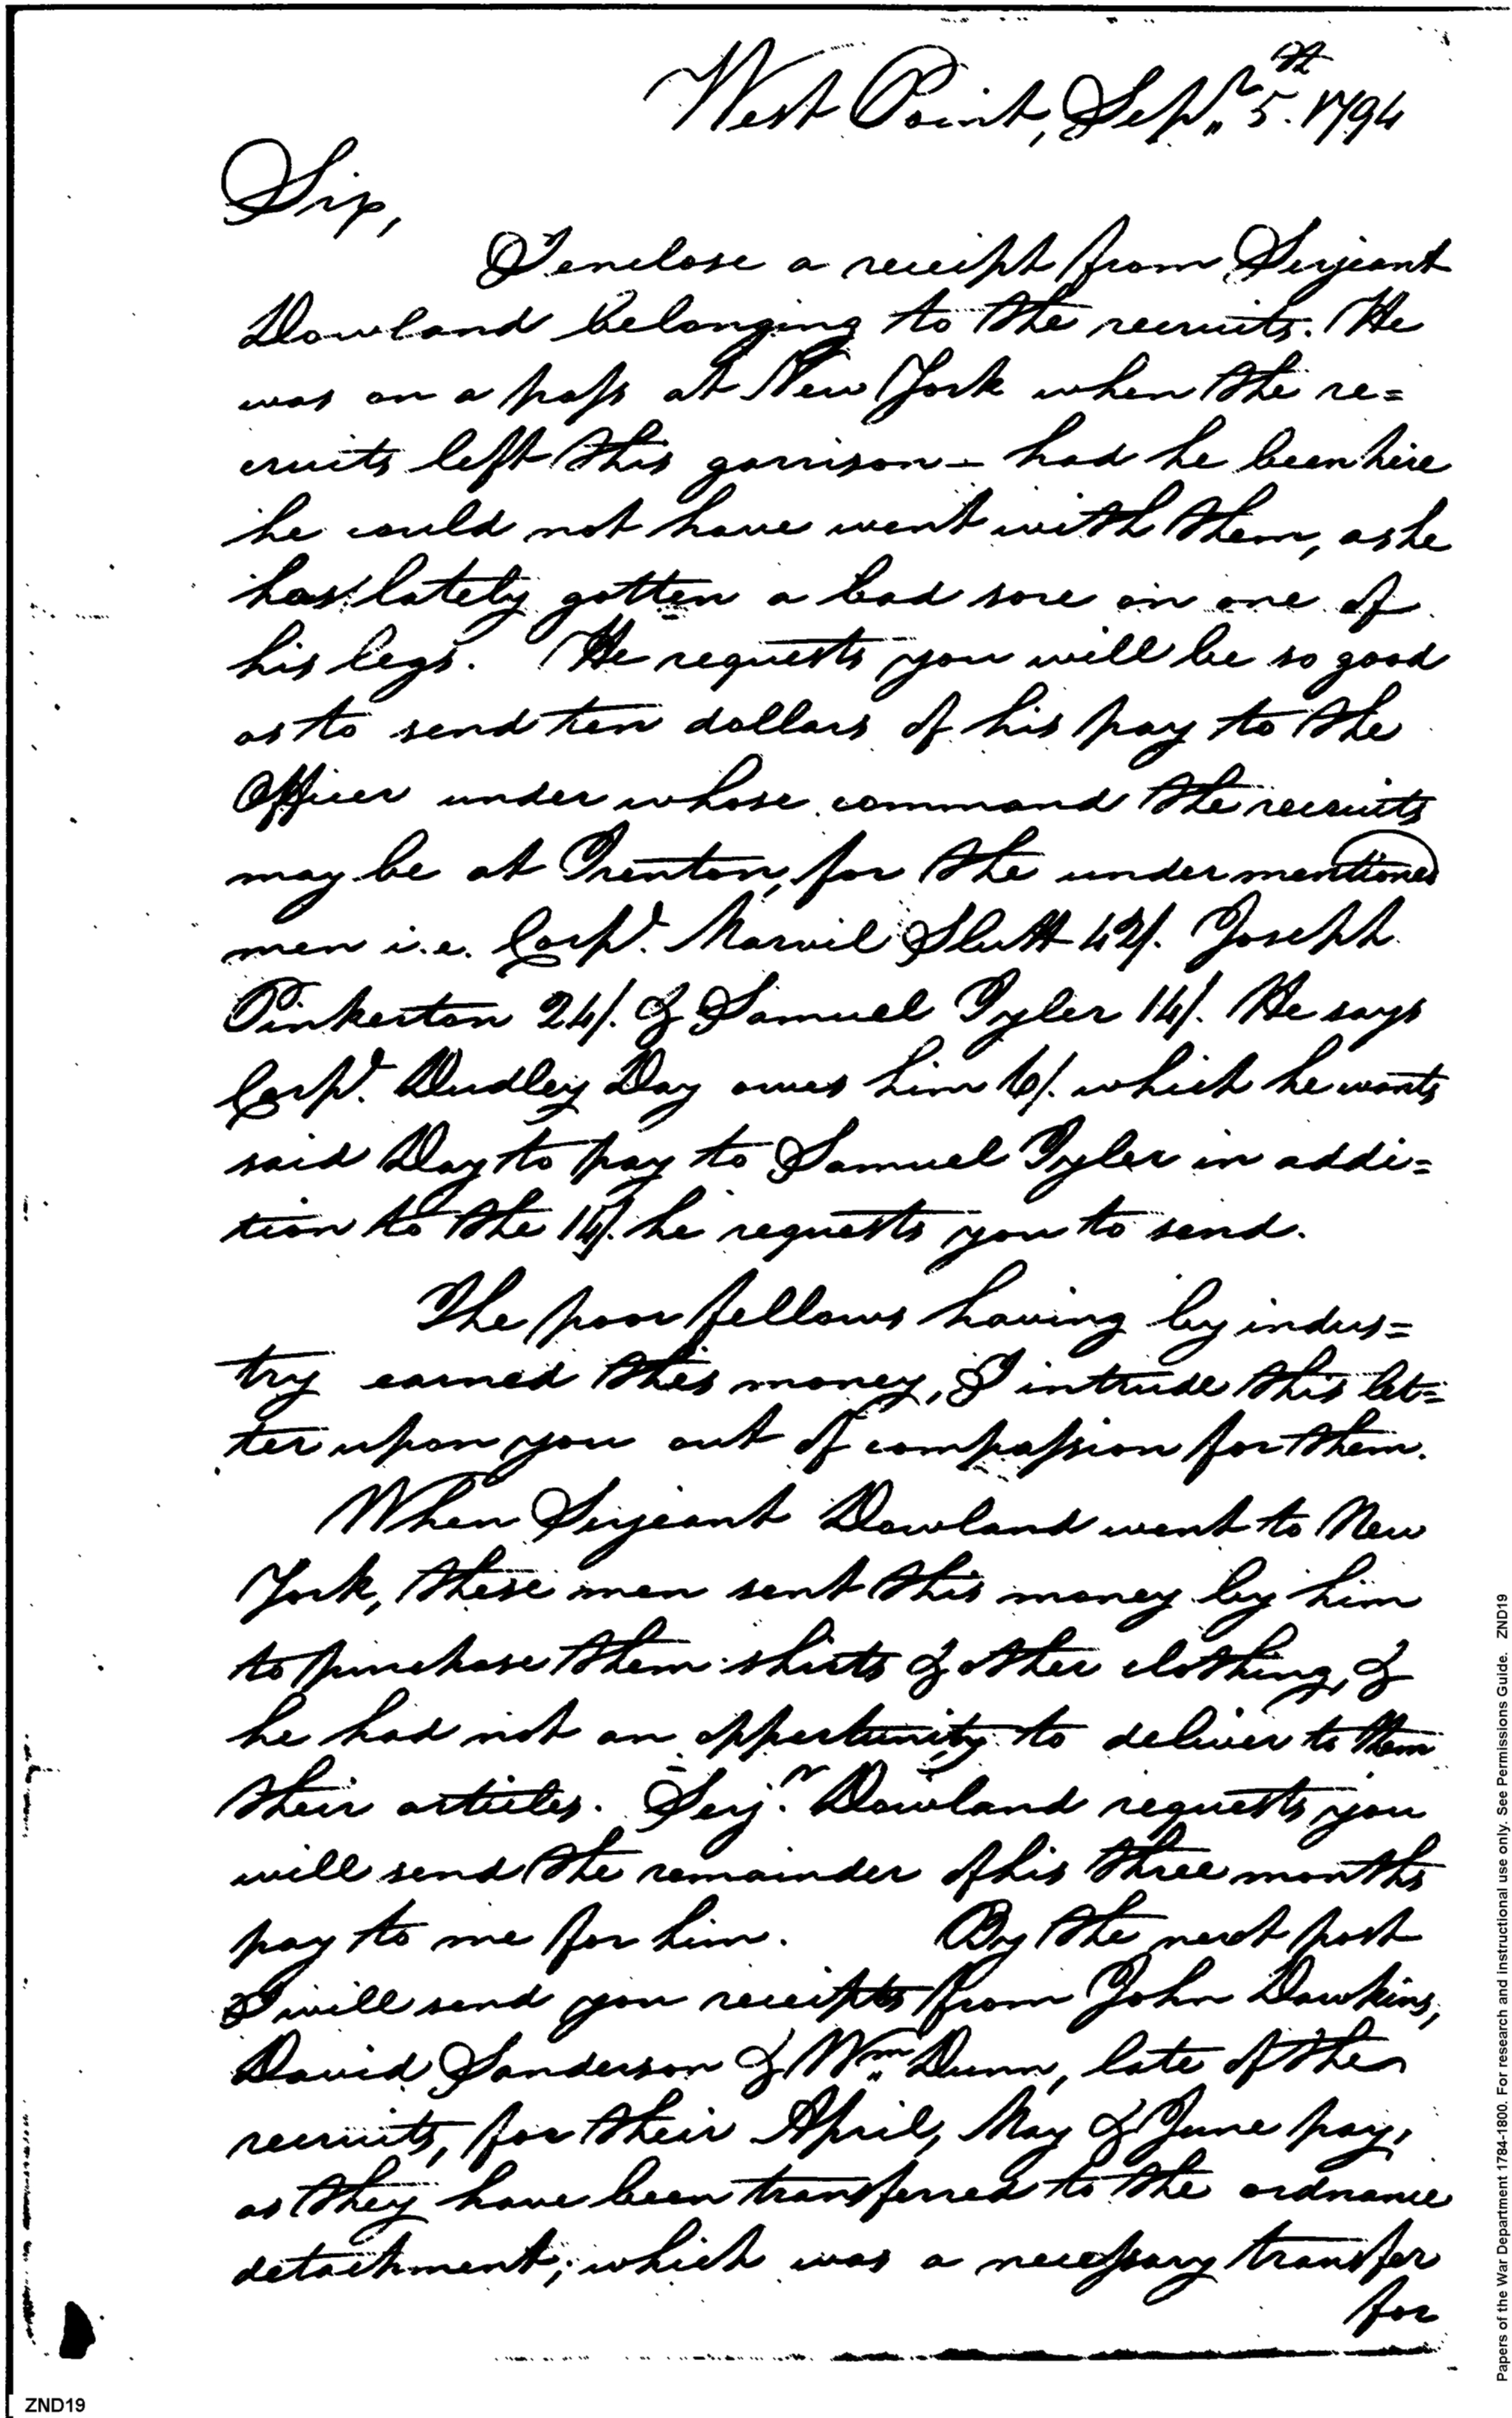 West Point, Sepr. 5th. 1794
Sir,
I enclose a receipt from Serjeant
Dowland belonging to the recruits. He
was on a pass at New York when the re=
cruits left this garrison – had he been here
he could not have went with them, as he
has lately gotten a bad sore on one of
his legs. He requests you will be so good
as to send ten dollars of his pay to the
Officer under whose command the recruits
may be at Trenton, for the undermentioned
men i.e. Corpl. Marvil Slutt 42/. Joseph
Pinkerton 24/. & Samuel Tyler 14/. He says
Corpl. Dudley Day owes him 6/. which he wants
said Day to pay to Samuel Tyler in addi=
tion to the 14/. he requests you to send.
The poor fellows having by indus=
try earned this money, I intrude this let=
ter upon you out of compassion for them.
When Serjeant Dowland went to New
York, these men sent this money by him
to purchase them shirts & other clothing, &
he had not an oppertunity to deliver to them
their articles. Serjr. Dowland requests you
will send the remainder of his three months
pay to me for him. By the next post
I will send you receipts from John Dawkins,
David Sanderson & Wm. Dunn, late of the
recruits, for their April, May & June pay,
as they have been transferred to the ordnance
detachment; which was a necessary transfer
for
ZND19
Papers of the War Department 1784-1800. For research and instructional use only. See Permissions Guide. ZND19